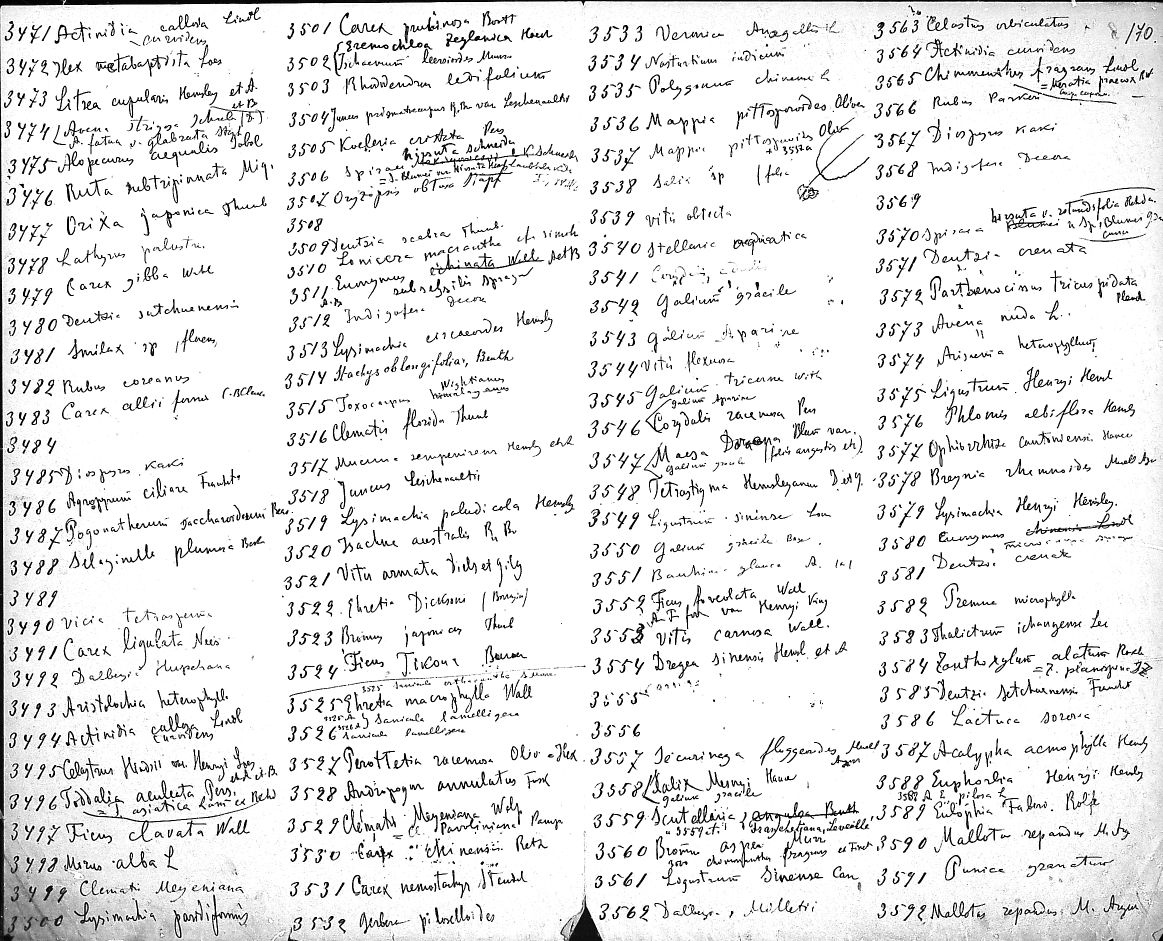 170.
3471 Actinidia callosa Lindl
curvidens
3472 Ilex metabaptista Loes
3473 Litsea cupularis Hemsley et A.
et B
3474 Avena strigosa Schreb (?)
A. fatua v. glabrata
3475 Alopecurus aequalis Sobol
3476 Ruta subtripinnata Miq.
3477 Orixa japonica Thunb
3478 Lathyrus palustris
3479 Carex gibba Wahl
3480 Deutzia setchuenensis
3481 Smilax sp (flores)
3482 Rubus coreanus
3483 Carex alliiformis C.B.Clarke
3484
3485 Diospyros Kaki
3486 Agropyrum ciliare Franchet
3487 Pogonatherum saccharoideum Beauv.
3488 Selaginella plumosa Baker
3489
3490 Vicia tetrasperma
3491 Carex ligulata Nees
3492 Dalbergia Hupehana
3493 Aristolochia heterophylla
3494 Actinidia callosa Lindl
curvidens
3495 Celastrus Hindsii var. Henryi
3496 Toddalia aculeata Pers.
= asiatica Lam
3497 Ficus clavata Wall
3498 Morus alba L
3499 Clematis Meyeniana
3500 Lysimachia paridiformis
3501 Carex pruinosa Boott
3502 Eremochloa zeylanica Hack
Ischaemum leersioides Munro
3503 Rhododendron ledifolium
3504 Juncus prismatocarpus R.Br. var. Leschenaultii
3505 Koeleria cristata Pers
hirsuta Schneider
3506 Spiraea
3507 Oryzopsis obtusa Stapf
3508
3509 Deutzia scabra Thunb.
3510 Lonicera macrantha
3511 Euonymus echinata Wall
subsessilis Sprague
3512 Indigofera decora
3513 Lysimachia circaeoides Hemsley
3514 Stachys oblongifolia, Benth
3515 Toxocarpus Wightianus
himalayensis
3516 Clematis florida Thunb
3517 Mucuna sempervirens Hemsley et A
3518 Juncus Leschenaultii
3519 Lysimachia paludicola Hemsley
3520 Isachne australis R. Br
3521 Vitis armata Diels et Gilg
3522 Ehretia Dicksoni
3523 Bromus japonicus Thunb
3524 Ficus Tikoua Bureau
3525 Ehretia macrophylla Wall
3526 Sanicula lamelligera
Sanicula lamelligera
3527 Perottetia racemosa Oliv
3528 Andropogon annulatus Forsk
3529 Clematis Meyeniana Walp
Pavoliniana Pamp
3530 Carex chinensis Retz
3531 Carex nemostachys Steudel
3532 Gerbera piloselloides
3533 Veronica Anagallis L
3534 Nasturtium indicum
3535 Polygonum chinense L
3536 Mappia pittosporoides Oliver
3537 Mappia pittosporoides Oliver
3538 Salix sp (folia)
3539 Vitis obtecta
3540 Stellaria aquatica
3541 Corydalis
3542 Galium gracile
3543 Galium Aparine
3544 Vitis flexuosa
3545 Galium tricorne With
galium aparine
3546 Corydalis racemosa Pers
3547 Maesa Doraena Blum var.
galium gracile (foliis angustis etc)
3548 Tetrastigma Hemsleyanum D et G
3549 Ligustrum sinense Lour
3550 Galium gracile Bunge
3551 Bauhinia glauca
3552 Ficus foveolata Wall
var Henryi King
3553 Vitis carnosa Wall.
3554 Dregea sinensis Hemsl et A
3555
3556
3557 Securinega fluggeoides Muell
3558 Salix Mesnyi Hance
galium gracile
3559 Scutellaria angulosa Benth
Franchetiana, Leveille
3560 Bromus asper Murr
3561 Ligustrum Sinense Lour
3562 Dalbergia, Millettii
3563 Celastrus orbiculatus
3564 Actinidia curvidens
3565 Chimonanthus fragrans Lindl
= Meratia praecox
3566 Rubus Parkeri
3567 Diospyros Kaki
3568 Indigofera Decora
3569
3570 Spiraea hirsuta v. rotundifolia Rehder
3571 Deutzia crenata
3572 Parthenocissus tricuspidata
Planch
3573 Avena nuda L.
3574 Arisaema heterophyllum
3575 Ligustrum Henryi Hemsl
3576 Phlomis albiflora Hemsley
3577 Ophiorrhiza cantoniensis Hance
3578 Breynia rhamnoides
3579 Lysimachia Henryi Hemsley.
3580 Euonymus chinensis Lindl
3581 Deutzia crenata
3582 Premna microphylla
3583 Thalictrum ichangense Lec
3584 Zanthoxylum alatum Roxb
3585 Deutzia Setchuenensis Franchet
3586 Lactuca sororia
3587 Acalypha acmophylla Hemsley
3588 Euphorbia Henryi Hemsley
3589 Eulophia Faberi Rolfe
3590 Mallotus repandus M. Arg
3591 Punica granatum
3592 Mallotus repandus M. Argu